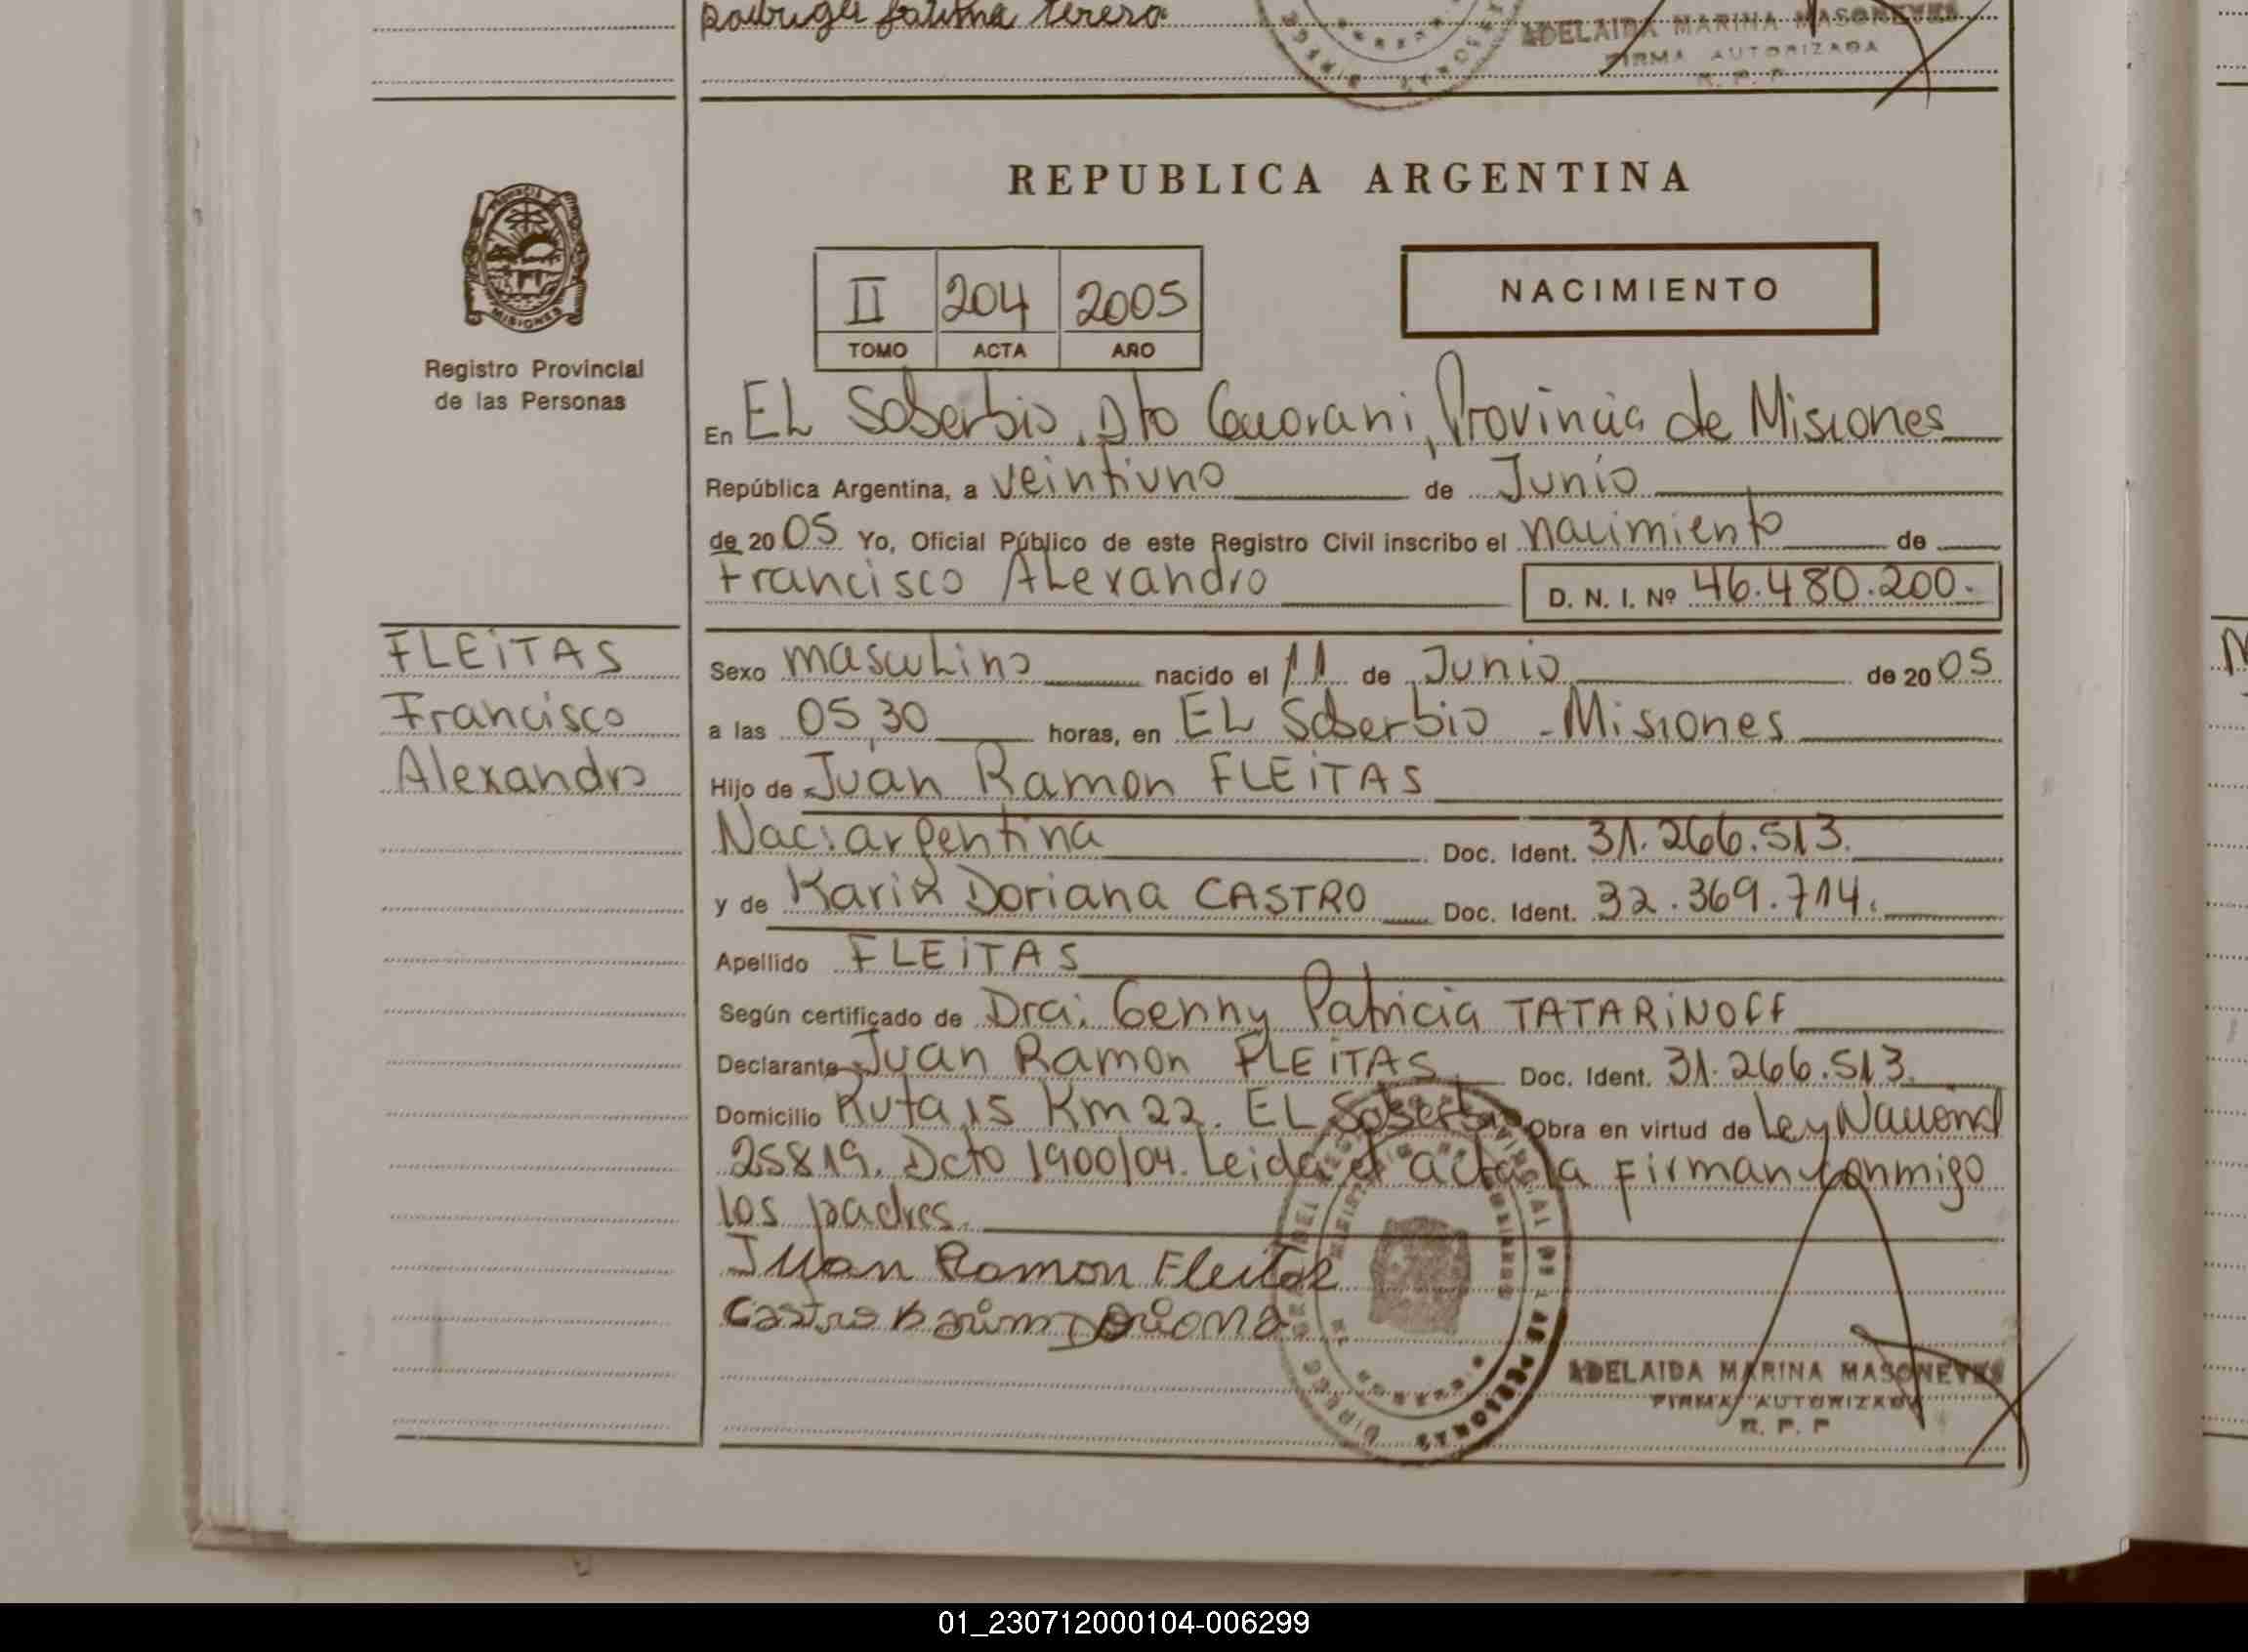 rodriguez fatima teresa
ADELAIDA MARINA MASONEVES
FIRMA AUTORIZADA
R. P. P
REPUBLICA ARGENTINA
PROVINCIA DE MISIONES
Registro Provincial
de las Personas
II 204 2005
TOMO ACTA AÑO
NACIMIENTO
En EL Soberbio, Dto Guarani, Provincia de Misiones
República Argentina, a veintiuno de Junio
de 20 05 Yo, Oficial Público de este Registro Civil inscribo el nacimiento de
Francisco ALexandro D. N. I. Nº 46.480.200.-
FLEiTAS
Francisco
Alexandro
Sexo mascuLino nacido el 11 de Junio de 20 05
a las 05,30 horas, en EL Soberbio - Misiones
Hijo de Juan Ramon FLEiTAS
Nac: argentina Doc. Ident. 31.266.513.
y de Karin Doriana CASTRO Doc. Ident. 32.369.714.
Apellido FLEiTAS
Según certificado de Dra. Genny Patricia TATARiNOFF
Declarante Juan Ramon FLEiTAS Doc. Ident. 31.266.513.
Domicilio Ruta 15 Km 22. EL Soberbio Obra en virtud de Ley Nacional
25819. Dcto 1900/04. Leida el acta la Firman conmigo
los padres.
Juan Ramon Fleitas
Castro Karim Doriana
ADELAIDA MARINA MASONEVES
FIRMA AUTORIZADA
R. P. P
01_230712000104-006299